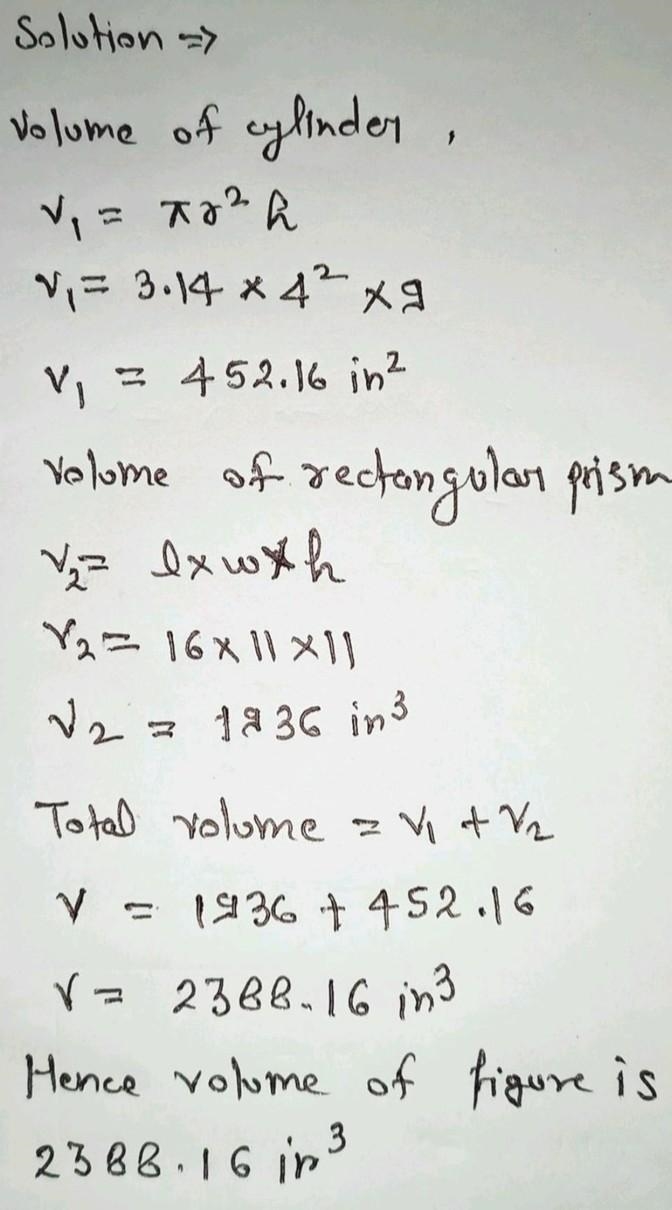 Solution =>
Volume of cylinder,
V₁ = πr² h
V₁ = 3.14 × 4² × 9
V₁ = 452.16 in²
Volume of rectangular prism
V₂ = l × w × h
V₂ = 16 × 11 × 11
V₂ = 1936 in³
Total volume = V₁ + V₂
V = 1936 + 452.16
V = 2388.16 in³
Hence volume of figure is
2388.16 in³